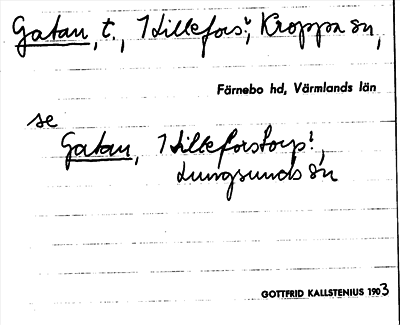 Gatan, t., 1 Lillefors:, Kroppa sn,
Färnebo hd, Värmlands län
se
Gatan, 1 Lilleforstorp:,
Lungsunds sn
GOTTFRID KALLSTENIUS 1903